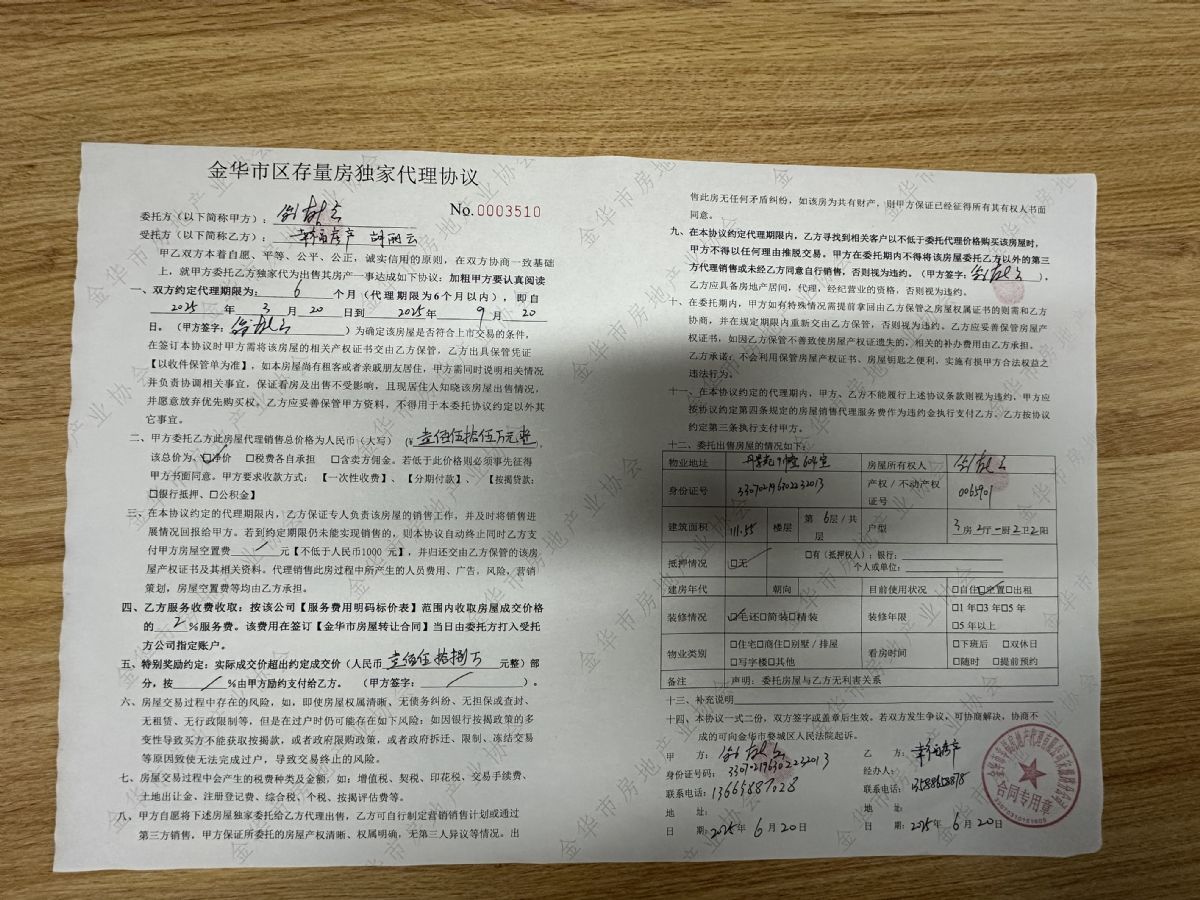 金华市区存量房独家代理协议
No.0003510
委托方(以下简称甲方):
受托方(以下简称乙方):幸福房产 胡丽云
甲乙双方本着自愿、平等、公平、公正,诚实信用的原则,在双方协商一致基础
上,就甲方委托乙方独家代为出售其房产一事达成如下协议:加粗甲方要认真阅读
一、双方约定代理期限为: 6 个月(代理期限为6个月以内),即自
2025 年 3 月 20 日到 2025 年 9 月 20
日。(甲方签字: )为确定该房屋是否符合上市交易的条件,
在签订本协议时甲方需将该房屋的相关产权证书交由乙方保管,乙方出具保管凭证
【以收件保管单为准】,如本房屋尚有租客或者亲戚朋友居住,甲方需同时说明相关情况
并负责协调相关事宜,保证看房及出售不受影响,且现居住人知晓该房屋出售情况,
并愿意放弃优先购买权。乙方应妥善保管甲方资料,不得用于本委托协议约定以外其
它事宜。
二、甲方委托乙方此房屋代理销售总价格为人民币(大写)(¥壹佰伍拾伍万元整)
该总价为、☑净价 □税费各自承担 □含卖方佣金。若低于此价格则必须事先征得
甲方书面同意。甲方要求收款方式:【一次性收费】、【分期付款】、【按揭贷款:
□银行抵押、□公积金】
三、在本协议约定的代理期限内,乙方保证专人负责该房屋的销售工作,并及时将销售进
展情况回报给甲方。若到约定期限仍未能实现销售的,则本协议自动终止同时乙方支
付甲方房屋空置费 / 元【不低于人民币1000 元】,并归还交由乙方保管的该房
屋产权证书及其相关资料。代理销售此房过程中所产生的人员费用、广告,风险,营销
策划,房屋空置费等均由乙方承担。
四、乙方服务收费收取:按该公司【服务费用明码标价表】范围内收取房屋成交价格
的 2 %服务费。该费用在签订【金华市房屋转让合同】当日由委托方打入受托
方公司指定账户。
五、特别奖励约定:实际成交价超出约定成交价(人民币 壹佰伍拾捌万 元整)部
分,按 / %由甲方励约支付给乙方。(甲方签字: / )。
六、房屋交易过程中存在的风险,如,即使房屋权属清晰、无债务纠纷、无担保或查封、
无租赁、无行政限制等,但是在过户时仍可能存在如下风险:如因银行按揭政策的多
变性导致买方不能获取按揭款,或者政府限购政策,或者政府拆迁、限制、冻结交易
等原因致使无法完成过户,导致交易终止的风险。
七、房屋交易过程中会产生的税费种类及金额,如:增值税、契税、印花税、交易手续费、
土地出让金、注册登记费、综合税、个税、按揭评估费等。
八、甲方自愿将下述房屋独家委托给乙方代理出售,乙方可自行制定营销销售计划或通过
第三方销售。甲方保证所委托的房屋产权清晰、权属明确,无第三人异议等情况。出
售此房无任何矛盾纠纷,如该房为共有财产,则甲方保证已经征得所有其有权人书面
同意。
九、在本协议约定代理期限内,乙方寻找到相关客户以不低于委托代理价格购买该房屋时,
甲方不得以任何理由推脱交易。甲方在委托期内不得将该房屋委托乙方以外的第三
方代理销售或未经乙方同意自行销售,否则视为违约。(甲方签字: ),
乙方应具备房地产居间,代理,经纪营业的资格,否则视为违约。
十、在委托期内,甲方如有特殊情况需提前拿回由乙方保管之房屋权属证书的则需和乙方
协商,并在规定期限内重新交由乙方保管,否则视为违约。乙方应妥善保管房屋产
权证书,如因乙方保管不善致使房屋产权证遗失的,相关的补办费用由乙方承担。
乙方承诺:不会利用保管房屋产权证书、房屋钥匙之便利,实施有损甲方合法权益之
违法行为。
十一、在本协议约定的代理期内,甲方、乙方不能履行上述协议条款则视为违约,甲方应
按协议约定第四条规定的房屋销售代理服务费作为违约金执行支付乙方、乙方按协议
约定第三条执行支付甲方。
十二、委托出售房屋的情况如下:
物业地址 604室 房屋所有权人
身份证号 330702196302232013 产权/不动产权证号 0065901
建筑面积 111.55 楼层 第 6层/共 层 户型 3房2厅一厨2卫2阳
抵押情况 ☑无 □有(抵押权人):银行:
个人或单位:
建房年代 朝向 目前使用状况 □自住☑空置□出租
装修情况 ☑毛还□简装□精装 装修年限 □1年□3年□5年
□5年以上
物业类别 □住宅□商住□别墅/排屋
□写字楼□其他 看房时间 □下班后 □双休日
□随时 □提前预约
备注 声明:委托房屋与乙方无利害关系
十三、补充说明
十四、本协议一式二份,双方签字或盖章后生效。若双方发生争议,可协商解决,协商不
成的可向金华市婺城区人民法院起诉。
甲 方:
身份证号码:330702196302232013
联系电话:13665887028
地 址:
日 期:2025年 6 月 20 日
乙 方:幸福房产
经办人:
联系电话:13588658878
地 址:
日 期:2025年 6 月 20 日
合同专用章
金华市房地产业协会